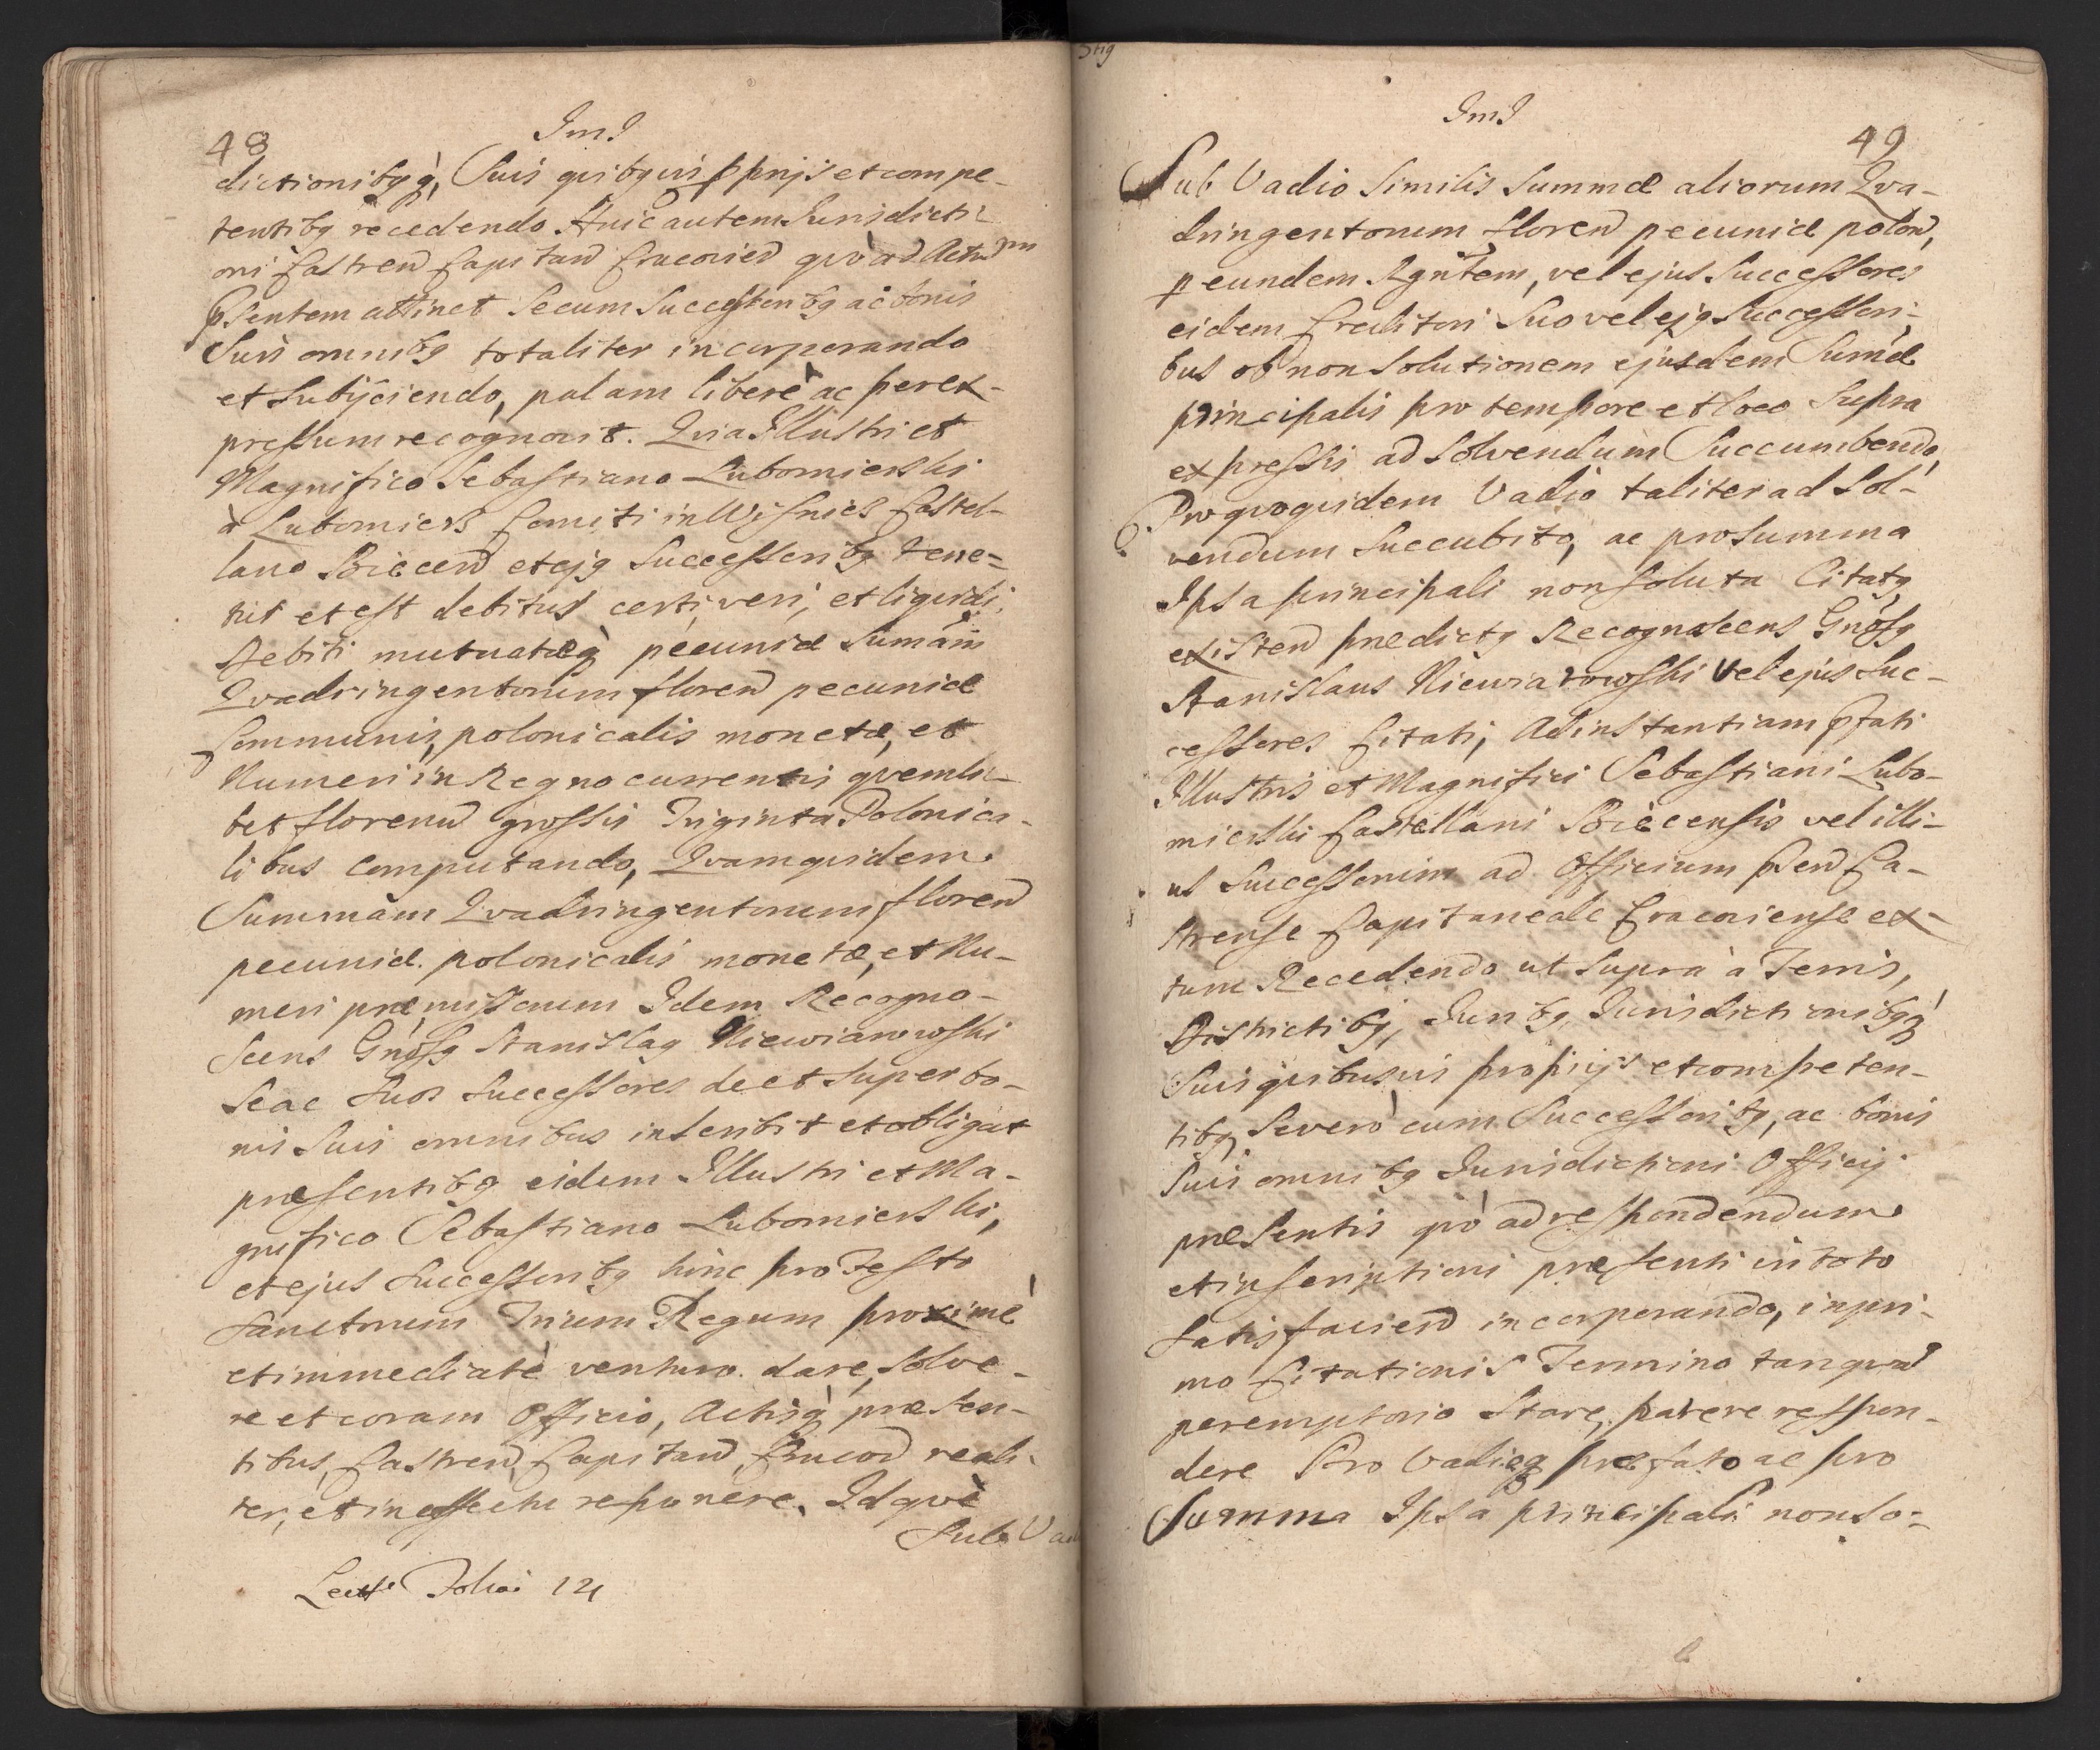 48
JmJ
dictionibqq́, Suis quibqvis pprijs et compe-
tentibq recedendo. Huic autem Jurisdicti-
oni Castren Capitan Cracovien qvò ad Actum
pñsentem attinet Secum Successoribq ac bonis
Suis omnibq totaliter incorporando
et Subijciendo, palam liberè ac per ex-
pressum recognovit. Qvia Illustri et
Magnifico Sebastiano Lubomierski
à Lubomierz Comiti in Wisnicz Castel-
lano Biecen et ejq Successoribq tene-
tur et est debitus certi, veri, et liqvidi,
Debiti mutuatæq́ pecuniæ Sumam̃
Qvadringentorum floren pecuniæ
Communis, polonicalis monetæ, et
Numeri in Regno currentis qvemli-
bet florenum grossis Triginta Polonica-
libus computando, Qvam quidem
Summam Qvadringentorum floren
pecuniæ. polonicalis monetæ, et Nu-
meri præmissorum Idem Recogno-
scens Gnosq Stanislaq Niewiarowski
Se ac Suos Successores de et Super bo-
nis Suis omnibus inscribit et obligat
præsentibq eidem Illustri et Ma-
gnifico Sebastiano Lubomierski,
et ejus Successoribq hinc pro Festo
Sanctorum Trium Regum proximè
et immediatè venturo. dare, Solve-
re et coram Officio, Actisq́ præsen-
tibus, Castren, Capitan, Cracov reali-
ter, et in effectu reponere. Idqvè
Sub Va
Folia 12
JmJ
49
Sub Vadio Similis Summæ aliorum Qva-
dringentorum Floren pecuniæ polon,
p eundem Rgñtem, vel ejus Successores
eidem Creditori Suo vel ejq Successori-
bus ob non Solutionem ejusdem Sumæ
principalis pro tempore et loco Supra
expressis ad Solvendum Succumbendo,
Pro qvoquidem Vadio taliter ad Sol-
vendum Succubito, ac pro Summa
Ipsa principali non Soluta Citatq
existen prædictq Recognoscens Gnosq
Stanislaus Niewiarowski vel ejus Suc-
cessores Citati, Ad instantiam pfati
Illustris et Magnifici Sebastiani Lubo-
mierski Castellani Biecensis vel illi-
us Successorum ad Officium pñsen Ca-
strense Capitaneale Cracoviense ex-
tum Recedendo ut Supra à Terris,
Districtibq, Juribq, Jurisdictionibqq́
Suis quibusvis proprijs et competen-
tibq, Severò cum Successoribq, ac bonis
Suis omnibq Jurisdictioni Officij
præsentis qvò ad respondendum
et inscriptioni præsenti in toto
Satisfacien incorporando, in pri-
mo Citationis Termino tanqvam
peremptorio Stare, parere respon-
dere Pro Vadioq præfato ac pro
Summa Ipsa principali non So-